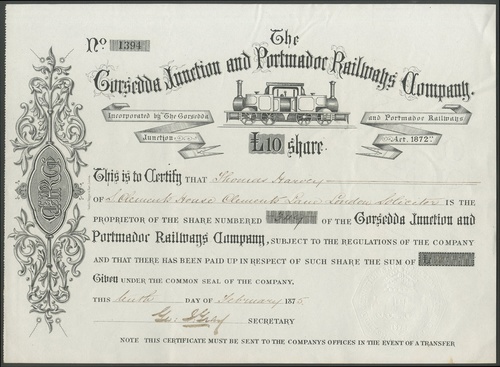 No. 1394
The
Gorsedda Junction and Portmadoc Railways Company.
Incorporated by "The Gorsedda
and Portmadoc Railways
Junction
Act, 1872"
£10 share.
This is to Certify THAT Thomas Harvey
OF St Clements House Clements Lane London Solicitor IS THE
PROPRIETOR OF THE SHARE NUMBERED OF THE Gorsedda Junction and
Portmadoc Railways Company, SUBJECT TO THE REGULATIONS OF THE COMPANY
AND THAT THERE HAS BEEN PAID UP IN RESPECT OF SUCH SHARE THE SUM OF
Given UNDER THE COMMON SEAL OF THE COMPANY.
THIS tenth DAY OF February 1875
SECRETARY
NOTE THIS CERTIFICATE MUST BE SENT TO THE COMPANYS OFFICES IN THE EVENT OF A TRANSFER